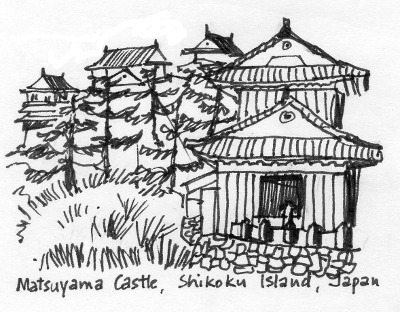 Matsuyama Castle, Shikoku Island, Japan